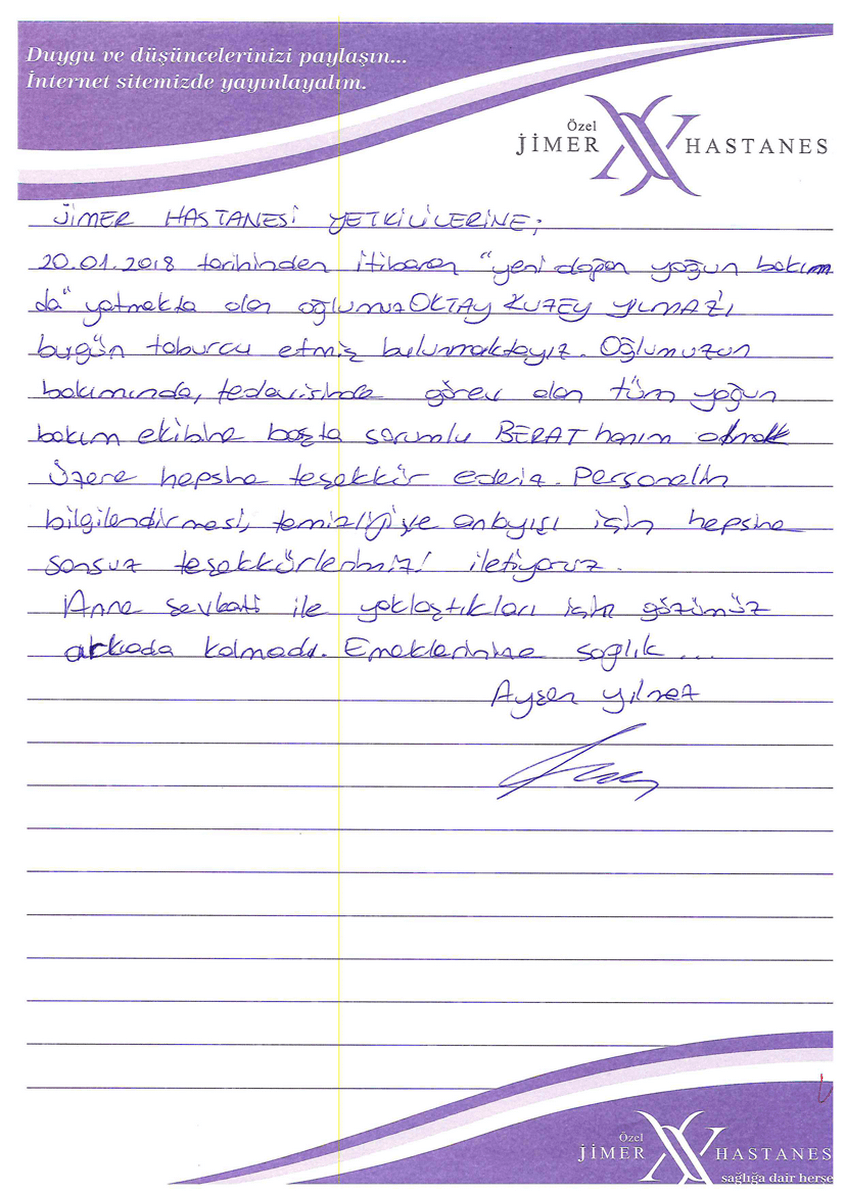 Duygu ve düşüncelerinizi paylaşın...
İnternet sitemizde yayınlayalım.
Özel
JİMER HASTANES
JİMER HASTANESİ YETKİLİLERİNE;
20.01.2018 tarihinden itibaren "yeni doğan yoğun bakım
da" yatmakta olan oğlumuz OKTAY KUZEY YILMAZ'ı
bugün taburcu etmiş bulunmaktayız. Oğlumuzun
bakımında, tedavisinde görev alan tüm yoğun
bakım ekibine başta sorumlu BERAT hanım olmak
üzere hepsine teşekkür ederiz. Personelin
bilgilendirmesi, temizliği ve anlayışı için hepsine
sonsuz teşekkürlerimizi iletiyoruz.
Anne şevkati ile yaklaştıkları için gözümüz
arkada kalmadı. Emeklerinine sağlık ...
Ayşen Yılmaz
Özel
JİMER HASTANES
sağlığa dair herşe